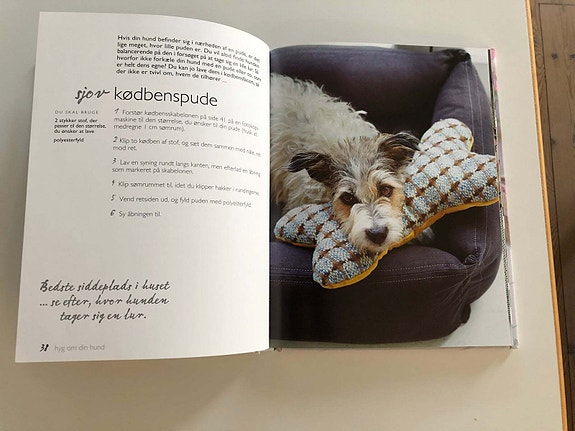 Hvis din hund befinder sig i nærheden af en pude, er det
lige meget, hvor lille puden er. Du vil altid finde hunden
balancerende på den i forsøget på at tage sig en lille lur. Så
hvorfor ikke forkæle din hund med en pude eller to, som
er helt dens egne? Du kan jo lave dem i kødbensfacon, så
der ikke er tvivl om, hvem de tilhører ...
sjov kødbenspude
DU SKAL BRUGE
2 stykker stof, der
passer til den størrelse,
du ønsker at lave
polyesterfyld
1 Forstør kødbensskabelonen på side 41 på en fotokopi-
maskine til den størrelse, du ønsker til din pude (husk at
medregne 1 cm sømrum).
2 Klip to kødben af stof, og sæt dem sammen med nåle, ret
mod ret.
3 Lav en syning rundt langs kanten, men efterlad en åbning
som markeret på skabelonen.
4 Klip sømrummet til, idet du klipper hakker i rundingerne.
5 Vend retsiden ud, og fyld puden med polyesterfyld.
6 Sy åbningen til.
Bedste siddeplads i huset
... se efter, hvor hunden
tager sig en lur.
38 hyg om din hund